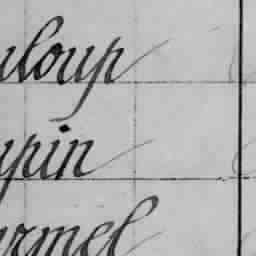 uloup
upin
armel